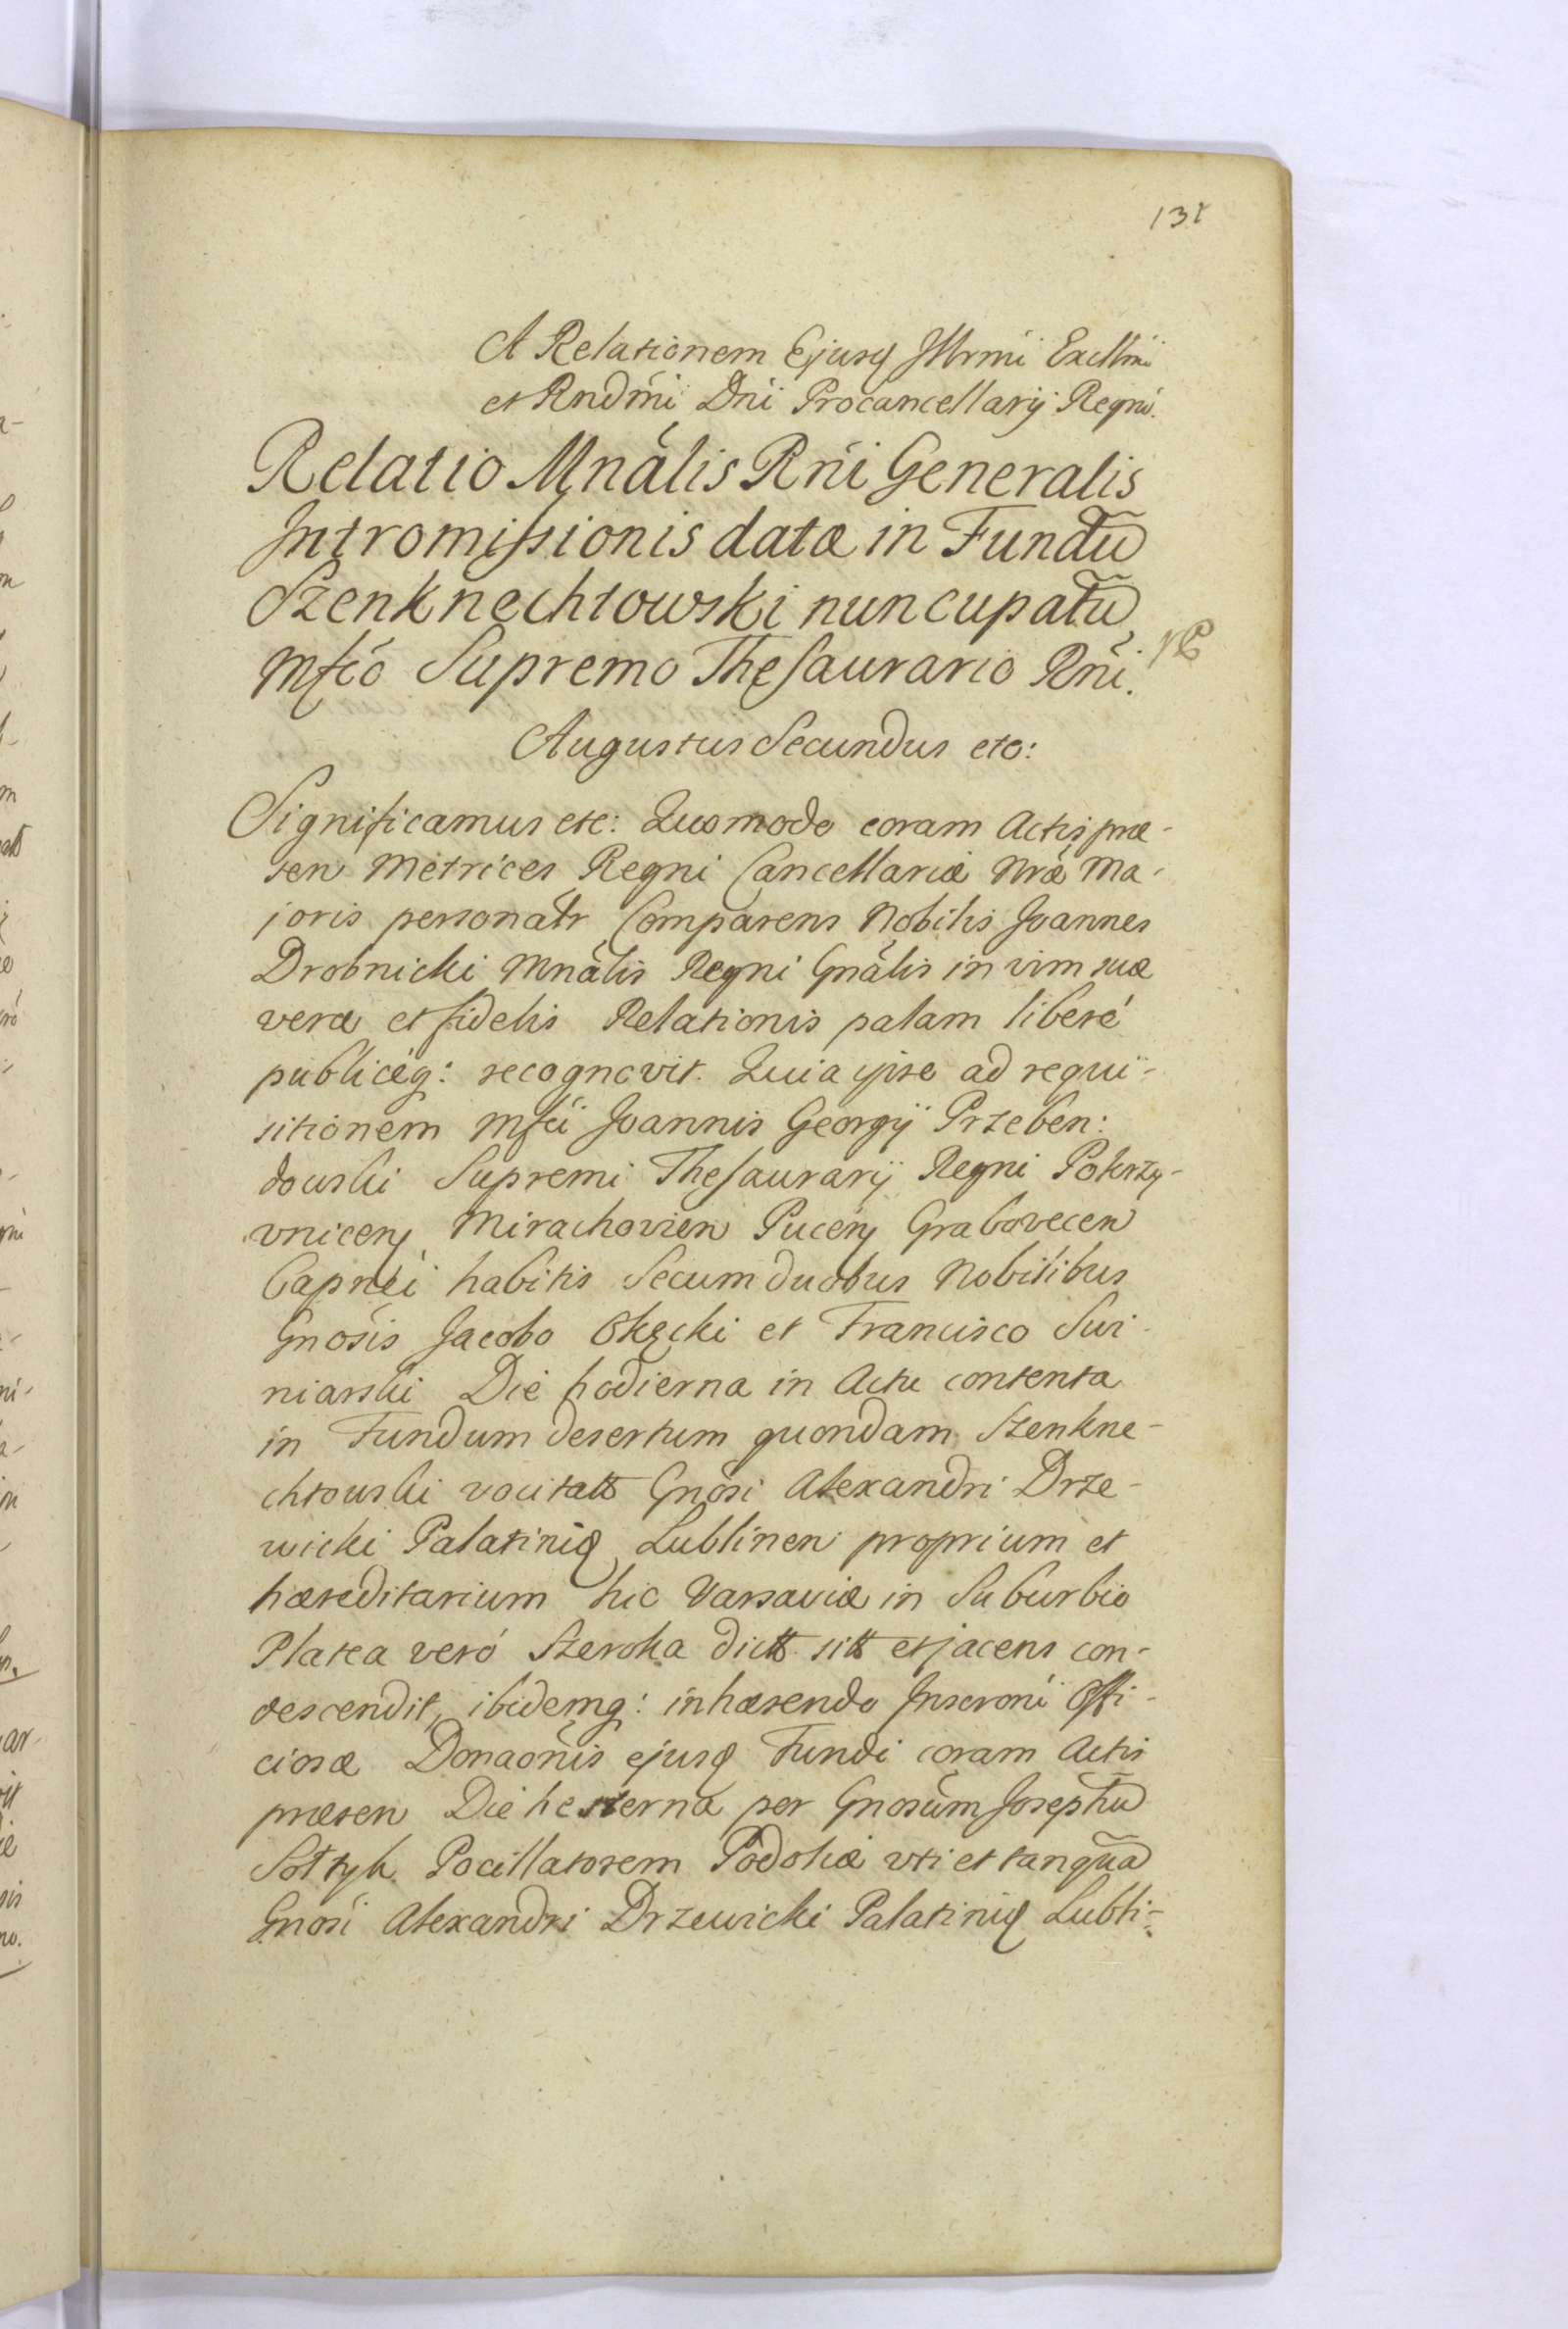 131
A Relationem Ejusq Illrmi Excllmi
et Rndmi Dni Procancellarij Regni.
Relatio Mnalis Rni Generalis
Intromissionis datæ in Fundu̅
Szenknechtowski nuncupatu̅
Mfco Supremo Thesaurario Rni.
Augustus Secundus etc:
Significamus etc: Quomodo coram Actis præ-
sen Metrices Regni Cancellariæ Nræ Ma-
joris personatr Comparens Nobilis Joannes
Drobnicki Mnalis Regni Gnalis in vim suæ
veræ et fidelis Relationis palam liberé
publicéq: recognovit. Quia ipse ad requi-
sitionem Mfci Joannis Georgij Przeben:
dowski Supremi Thesaurarij Regni Pokrzy-
vnicen Mirachovien Pucen Grabovecen
Capnei habitis Secum duobus Nobilibus
Gnosis Jacobo Okęcki et Francisco Swi-
niarski Die hodierna in Actu contenta
in Fundum desertum quondam Szenkne-
chtowski vocitatt Gnosi Alexandri Drze-
wicki Palatiniq Lublinen proprium et
hæreditarium hic Varsaviæ in Suburbio
Platea veró Szeroka dictt sitt et jacens con-
descendit, ibidemq: inhærendo Inscroni Offi-
ciosæ Donaonis ejusq Fundi coram Actis
præsen Die hesterna per Gnosum Josephu̅
Sołtyk Pocillatorem Podoliæ uti et tanqua̅
Gnosi Alexandri Drzewicki Palatiniq Lubli-